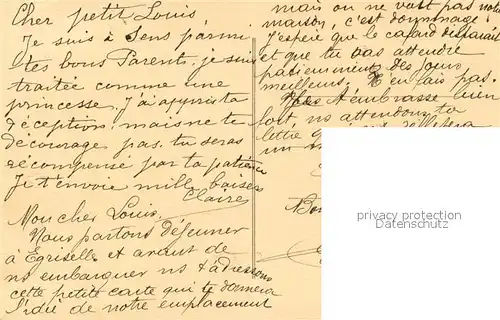 Cher petit Louis,
Je suis à Sens parmi
tes bons Parents, je suis
traitée comme une
princesse. J'ai appris ta
déception, mais ne te
décourage pas, tu seras
récompensé par ta patience
Je t'envoie mille baisers
Claire
Mon cher Louis,
Nous partons déjeuner
à Egriselle et avant de
ns embarquer ns t'adressons
cette petite carte qui te donnera
l'idée de notre emplacement
mais on ne voit pas notre
maison, c'est dommage!
J'espère que le cafard disparaît
et que tu vas attendre
patiemment des jours
meilleurs. T'en fais pas.
t'embrasse bien
fort, ns attendons ta
lettre
un
privacy protection
Datenschutz